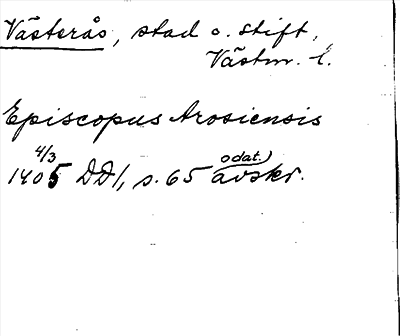 Västerås, stad o. stift,
Västm. l.
Episcopus Arosiensis
4/3
1405 DD1, s. 65 odat.) avskr.